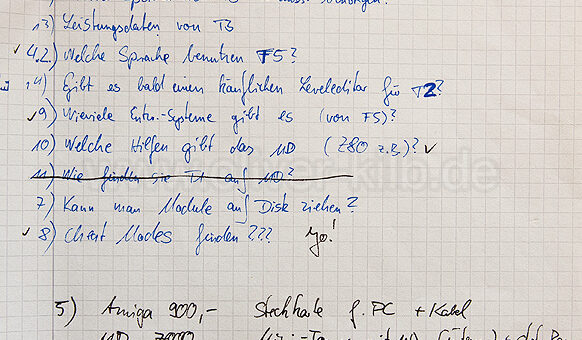 13) Leistungsdaten von T3
✓ 4.2.) Welche Sprache benutzen F5?
14) Gibt es bald einen käuflichen Leveleditor für T2?
✓ 9) Wieviele Entw.-Systeme gibt es (von F5)?
10) Welche Hilfen gibt das MD (Z80 z.B.)? ✓
11) Wie finden sie T1 auf MD?
7) Kann man Module auf Disk ziehen?
✓ 8) Cheat Modes finden??? Yo!
5) Amiga 900,- Steckkarte f. PC + Kabel
MD